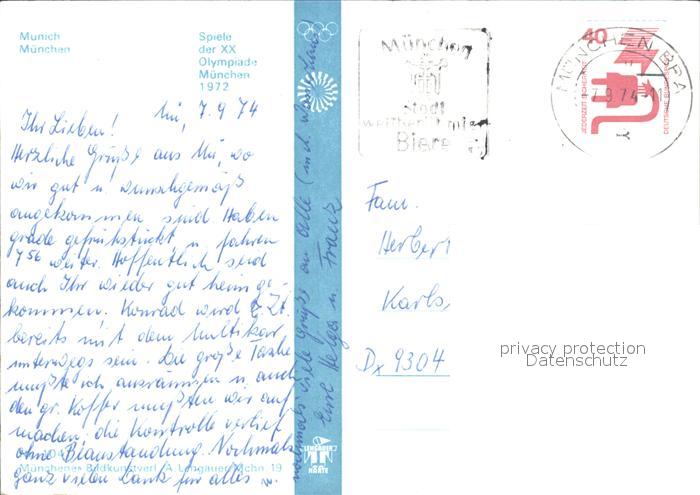 Munich
München
Spiele
der XX
Olympiade
München
1972
Mü, 7.9.74
Ihr Lieben!
Herzliche Grüße aus Mü, wo
wir gut u. wunschgemäß
angekommen sind. Haben
grade gefrühstückt u. fahren
7⁵⁶ weiter. Hoffentlich seid
auch Ihr wieder gut heimge-
kommen. Konrad wird z. Zt.
bereits mit dem Multikar
unterwegs sein. Die große Tasche
mußte ich ausräumen u. auch
den gr. Koffer mußten wir auf-
machen, die Kontrolle verlief
ohne Beanstandung. Nochmals
ganz vielen Dank für alles u.
nochmals viele Grüße an Alle
Eure Helga u. Franz
Münchener Bildkunstverl. A. Lengauer Mchn. 19
LENGAUER
KARTE
München
Stadt
weltberühmter
Biere
MÜNCHEN BPA
7.9.74-11
40
JEDERZEIT SICHERHEIT
DEUTSCHE BUNDESPOST
Fam.
Herbert
Karls
Dx 9304
privacy protection
Datenschutz